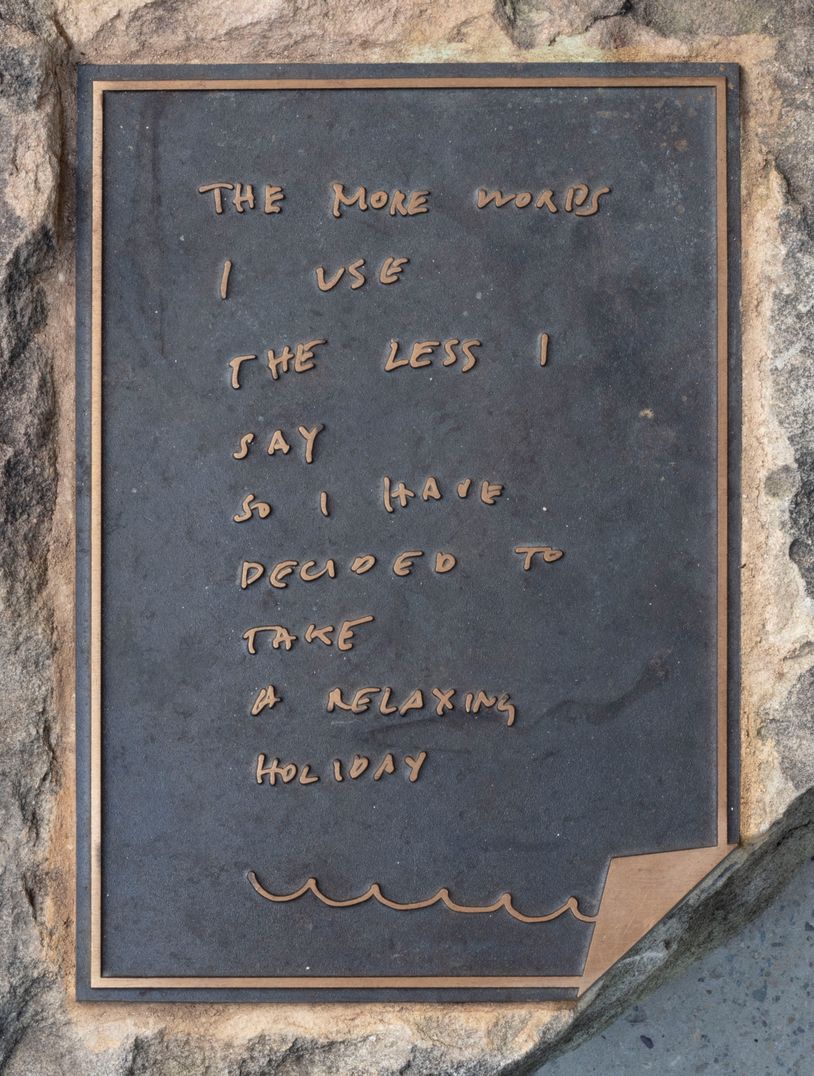 THE MORE WORDS
I USE
THE LESS I
SAY
SO I HAVE
DECIDED TO
TAKE
A RELAXING
HOLIDAY